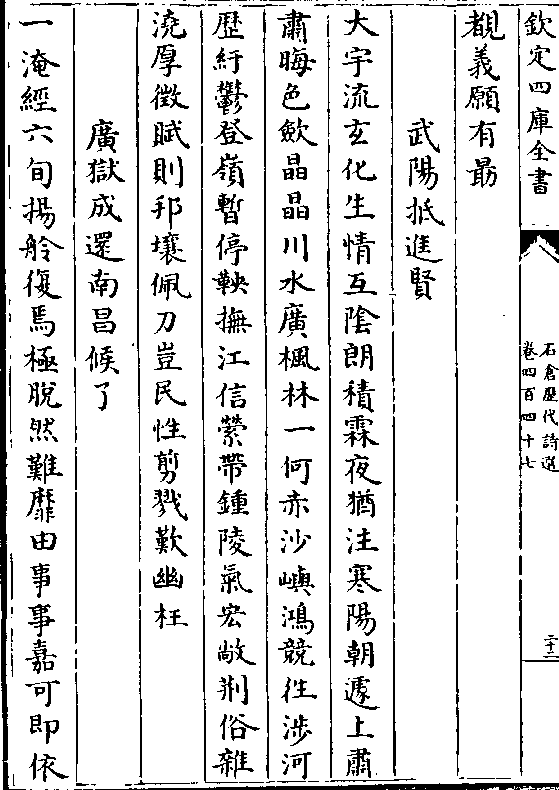 欽定四庫全書
石倉歷代詩選
卷四百四十七
二十二
覩義願有勗
武陽抵進賢
大宇流玄化生情互陰朗積霖夜猶注寒陽朝遽上肅
肅晦色歛晶晶川水廣楓林一何赤沙嶼鴻競徃涉河
歴紆鬱登嶺暫停鞅撫江信縈帶鍾陵氣宏敞荆俗雜
澆厚徴賦則邦壤佩刀豈民性剪戮歎幽枉
廣獄成還南昌候了
一淹經六旬揚舲復焉極脫然難靡由事事嘉可即依